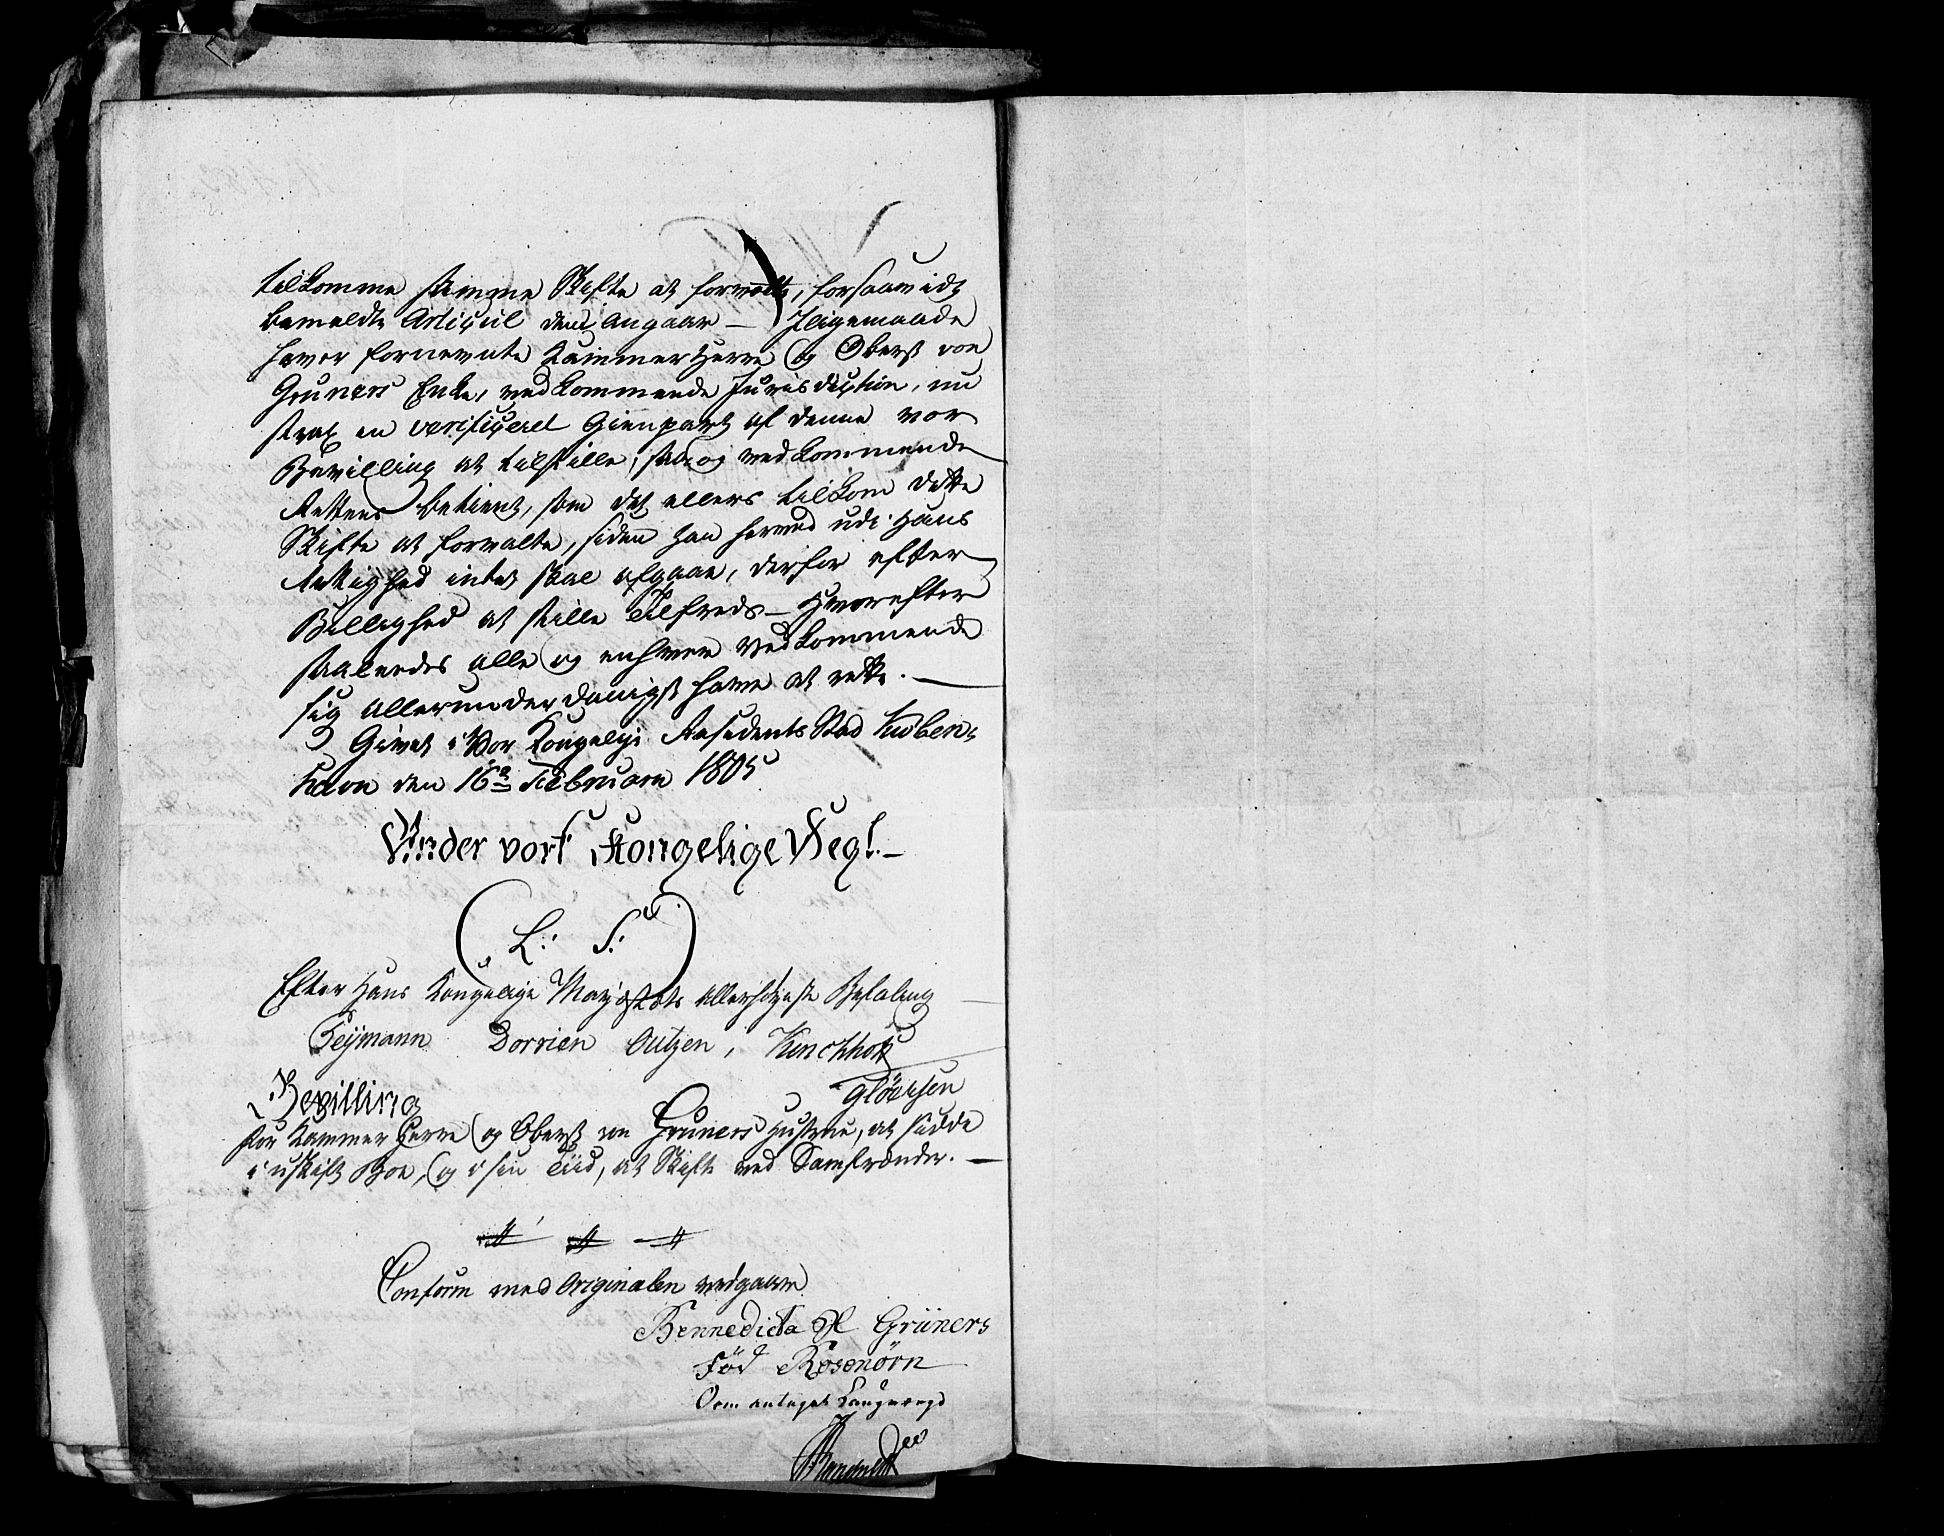 tilkomme samme Skifte at forvalte, forsaavidt
bemeldte Articul dem angaar — Iligemaade
haver fornevnte Kammer Herre og Oberst von
Gruners Enke, vedkommende Jurisdiction, nu
strax en verificeret Gienpart af denne vor
Bevilling at tilstille, saa og vedkommende
Rettens betient, som det ellers tilkom dette
Skifte at forvalte, siden han herved udi hans
Rettighed intet skal afgaae, derfor efter
Billighed at stille Tilfreds — Hvorefter
saaledes alle og enhver Vedkommende
sig allerunderdanigst have at rette. —
Givet i Vor Kongelige Residents Stad Kiøben-
havn den 16de Februarii 1805
Under vort Kongelige Segl. —
(L: S:)
Efter Hans Kongelige Majestæts allerhøyeste Befaling
Feÿmann Dorrien Outzen, Kirchhoff
Bevilling
for Kammer Herre og Oberst von Gruners Hustrue, at sidde
i uskift Boe, og i sin Tiid, at Skifte med Samfrænder. —
Conform med Originalen vedgaaer
Bennedicta H Grüners
Fød Rosenørn
Som antaget Laugværge